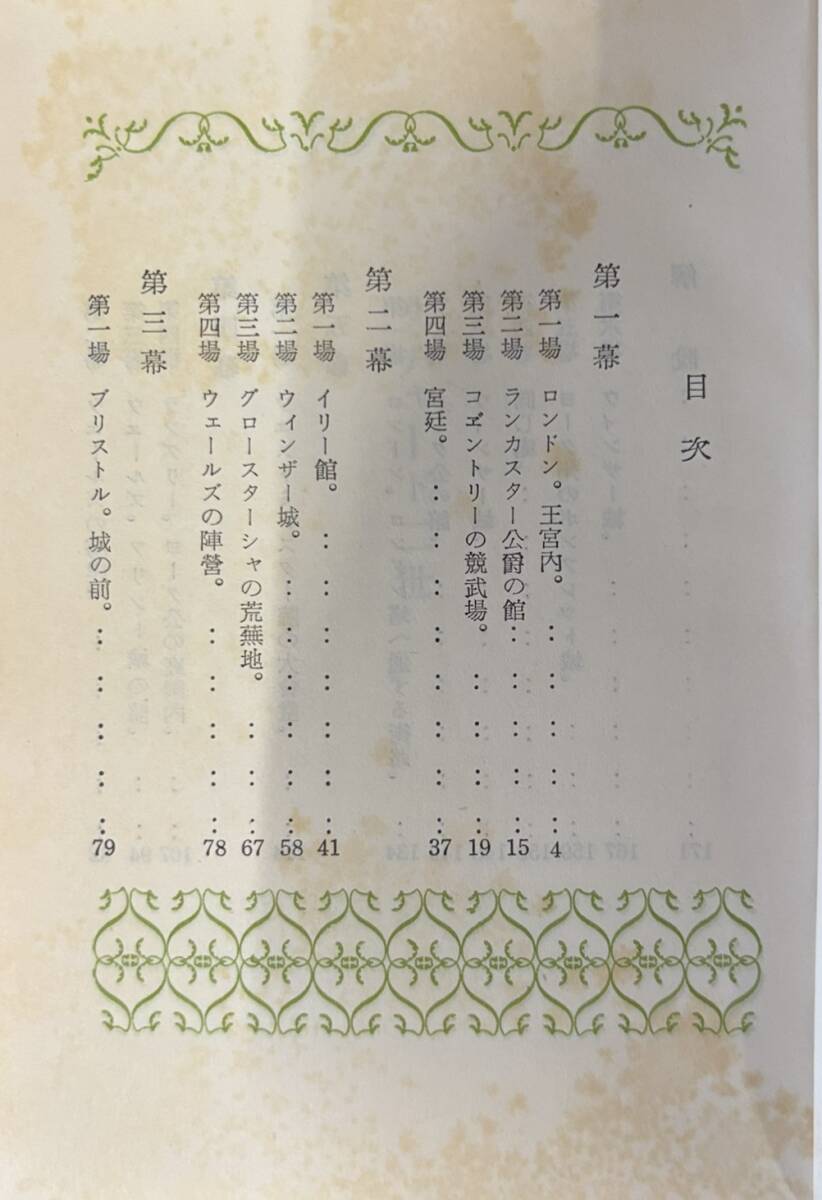 目次
第一幕
第一場 ロンドン。王宮内。 4
第二場 ランカスター公爵の館 15
第三場 コヹントリーの競武場。 19
第四場 宮廷。 37
第二幕
第一場 イリー館。 41
第二場 ウインザー城。 58
第三場 グロースターシャの荒蕪地。 67
第四場 ウェールズの陣營。 78
第三幕
第一場 ブリストル。城の前。 79